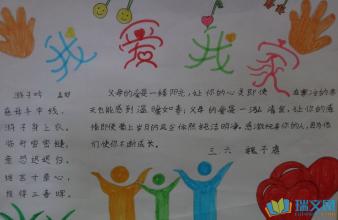 我爱我家
游子吟 孟郊
慈母手中线，
游子身上衣。
临行密密缝，
意恐迟迟归。
谁言寸草心，
报得三春晖。
父母的爱是一缕阳光，让你的心灵即使在寒冷的冬
天也能感到温暖如春；父母的爱是一泓清泉，让你的感
情即使蒙上岁月的风尘依然纯洁明净。感激抚养你的人，因为他
们使你不断成长。
三.六
瑞文网